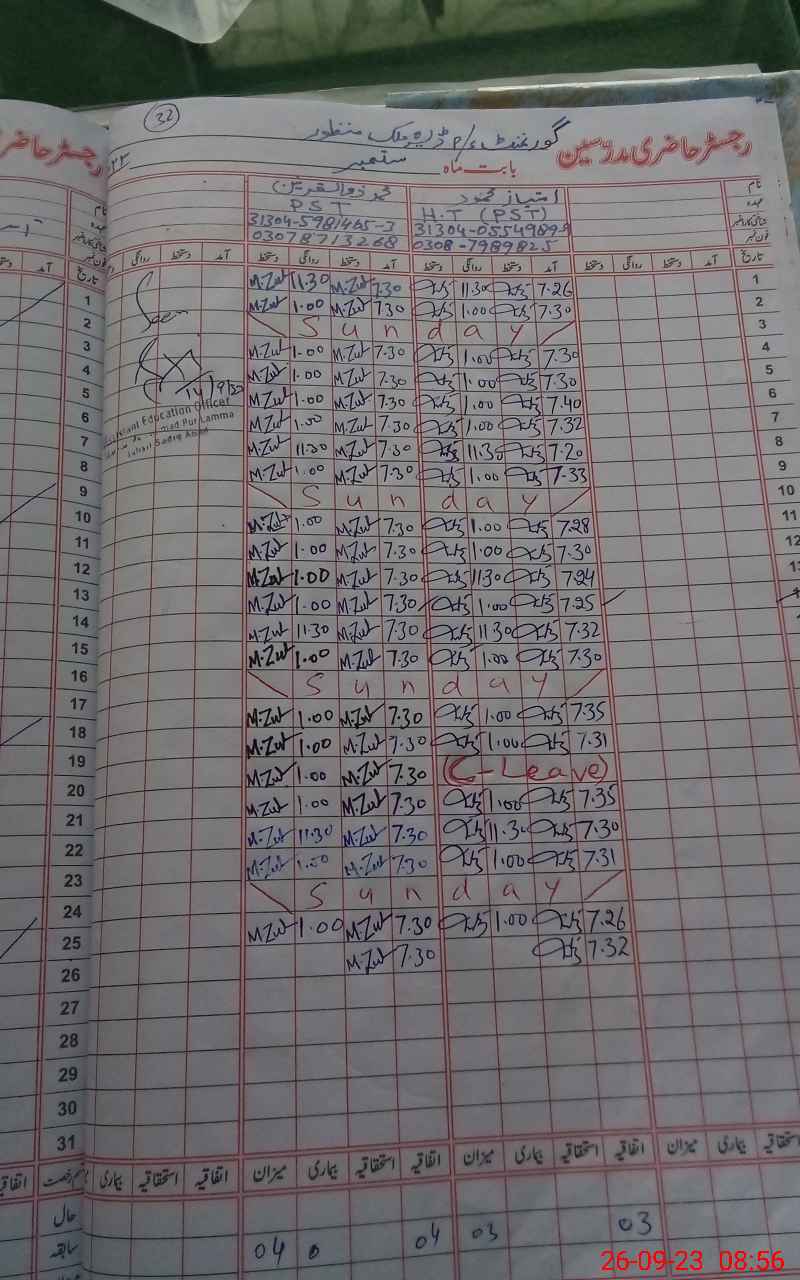 32
گورنمنٹ ء/م ڈیرہ ملک منظور
رجسٹر حاضری مدرّسین
بابت ماہ ستمبر ۲۳
نام امتیاز محمود محمد ذوالقرنین
عہدہ H.T (PST) PST
31304-5981465-3
فون نمبر 0308-7989825 03078713268
تاریخ آمد دستخط روانگی دستخط آمد دستخط روانگی دستخط آمد دستخط روانگی دستخط
1 M.Zul 11.30 M.Zul 7.30 11.30 7.26
2 M.Zul 1.00 M.Zul 7.30 1.00 7.30
3 Sunday
4 M.Zul 1.00 M.Zul 7.30 1.00 7.30
5 M.Zul 1.00 M.Zul 7.30 1.00 7.30
6 M.Zul 1.00 M.Zul 7.30 1.00 7.40
7 M.Zul 1.00 M.Zul 7.30 1.00 7.32
8 M.Zul 11.30 M.Zul 7.30 11.30 7.20
9 M.Zul 1.00 M.Zul 7.30 1.00 7.33
10 Sunday
11 M.Zul 1.00 M.Zul 7.30 1.00 7.28
12 M.Zul 1.00 M.Zul 7.30 1.00 7.30
13 M.Zul 1.00 M.Zul 7.30 11.30 7.24
14 M.Zul 1.00 M.Zul 7.30 1.00 7.25
15 M.Zul 11.30 M.Zul 7.30 11.30 7.32
16 M.Zul 1.00 M.Zul 7.30 1.00 7.30
17 Sunday
18 M.Zul 1.00 M.Zul 7.30 1.00 7.35
19 M.Zul 1.00 M.Zul 7.30 1.00 7.31
20 M.Zul 1.00 M.Zul 7.30 (C-Leave)
21 M.Zul 1.00 M.Zul 7.30 1.00 7.35
22 M.Zul 11.30 M.Zul 7.30 11.30 7.30
23 M.Zul 1.00 M.Zul 7.30 1.00 7.31
24 Sunday
25 M.Zul 1.00 M.Zul 7.30 1.00 7.26
26 M.Zul 7.30 7.32
27
28
29
30
31
Seen
14/9/23
Assistant Education Officer
Pur Lamma
Sadiq Abad
اتفاقیہ استحقاقیہ بیماری میزان اتفاقیہ استحقاقیہ بیماری میزان اتفاقیہ استحقاقیہ بیماری
حال
سابقہ 04 0 04 03 03
26-09-23 08:56